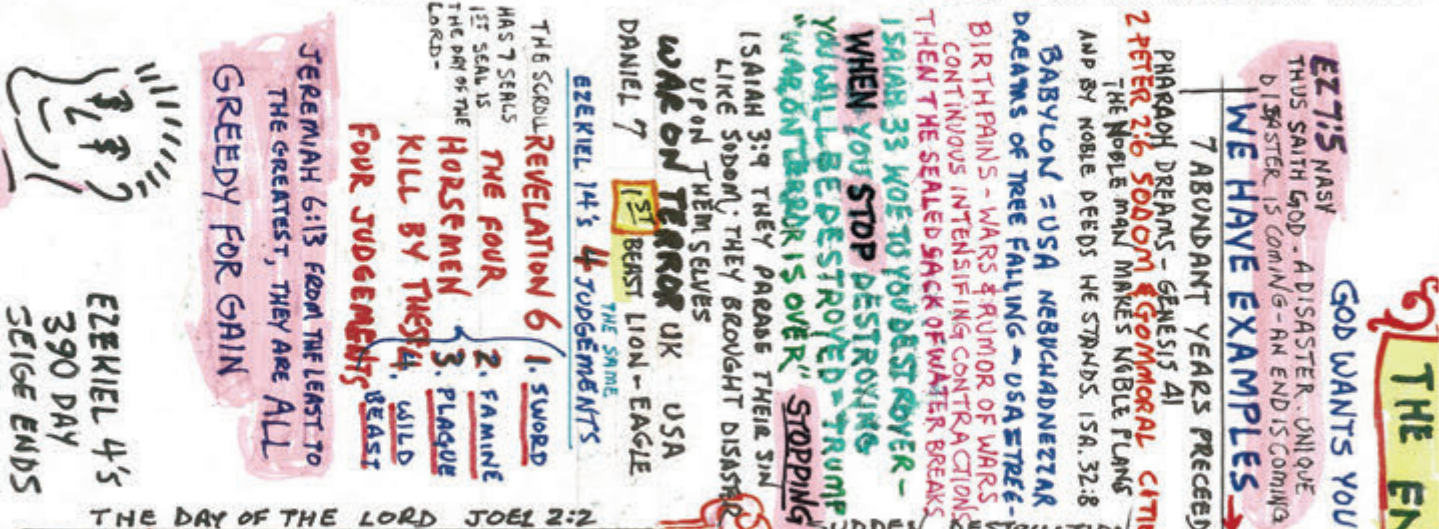 THE EN
GOD WANTS YOU
EZ 7:5 NASV
THUS SAITH GOD - A DISASTER. UNIQUE
DISASTER IS COMING - AN END IS COMING
WE HAVE EXAMPLES
7 ABUNDANT YEARS PRECEED
PHARAOH DREAMS - GENESIS 41
2 PETER 2:6 SODOM & GOMMORAL CITI
THE NOBLE MAN MAKES NOBLE PLANS
AND BY NOBLE DEEDS HE STANDS. ISA. 32:8
BABYLON = USA NEBUCHADNEZZAR
DREAMS OF TREE FALLING - USA = TREE -
BIRTH PAINS - WARS & RUMOR OF WARS
CONTINUOUS INTENSIFYING CONTRACTIONS
THEN THE SEALED SACK OF WATER BREAKS
ISAIAH 33 WOE TO YOU DESTROYER -
WHEN YOU STOP DESTROYING
YOU WILL BE DESTROYED = TRUMP
"WAR ON TERROR IS OVER" STOPPING
ISAIAH 3:9 THEY PARADE THEIR SIN
LIKE SODOM; THEY BROUGHT DISASTER
UPON THEMSELVES
WAR ON TERROR UK USA
DANIEL 7 1ST BEAST LION - EAGLE
THE SAME
EZEKIEL 14'S 4 JUDGEMENTS
THE SCROLL REVELATION 6 1. SWORD
HAS 7 SEALS THE FOUR 2. FAMINE
1ST SEAL IS HORSEMEN 3. PLAGUE
THE DAY OF THE KILL BY THESE 4. WILD
LORD - FOUR JUDGEMENTS BEAST
JEREMIAH 6:13 FROM THE LEAST TO
THE GREATEST, THEY ARE ALL
GREEDY FOR GAIN
EZEKIEL 4'S
390 DAY
SEIGE ENDS
THE DAY OF THE LORD JOEL 2:2
SUDDEN